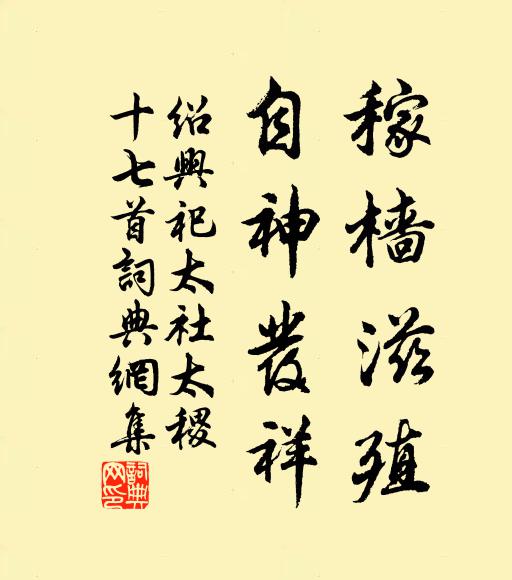 稼檣滋殖
自神發祥
紹興祀太社太稷
十七首詞典網集
詞典
网印